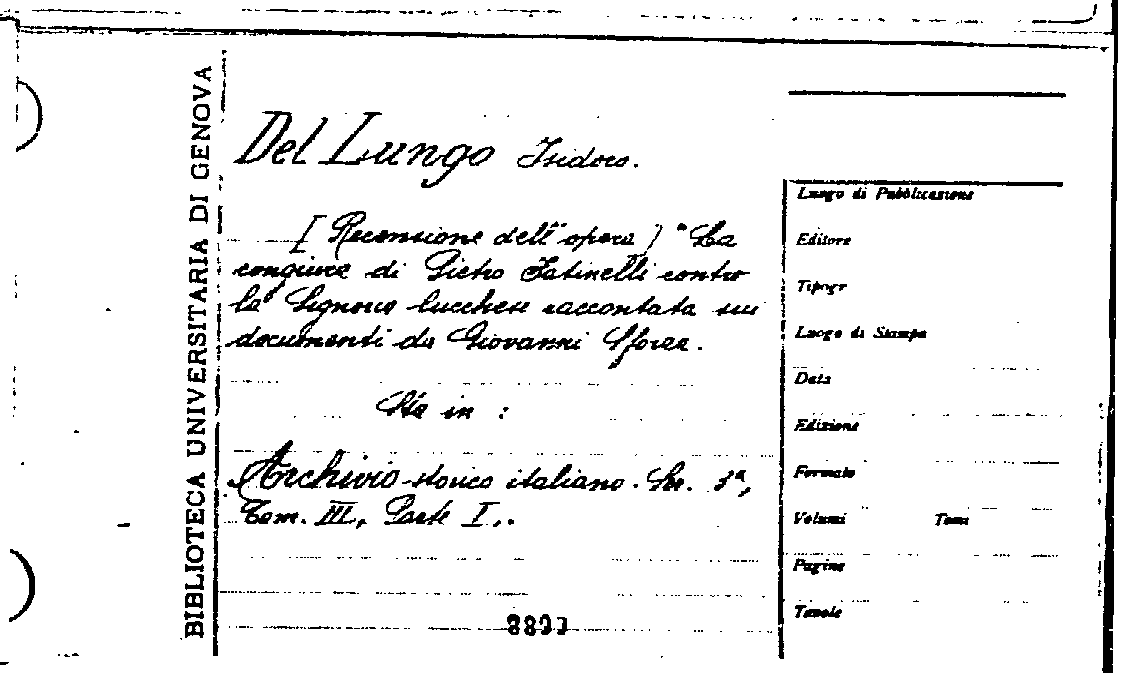 BIBLIOTECA UNIVERSITARIA DI GENOVA
Del Lungo Isidoro.
[Recensione dell'opera] "La
congiura di Pietro Fatinelli contro
la Signoria lucchese raccontata sui
documenti da Giovanni Sforza.
Sta in :
Archivio storico italiano. Ser. 3ª,
Tom. III, Parte I..
Luogo di Pubblicazione
Editore
Tipogr
Luogo di Stampa
Data
Edizione
Formato
Volumi Tomi
Pagine
Tavole